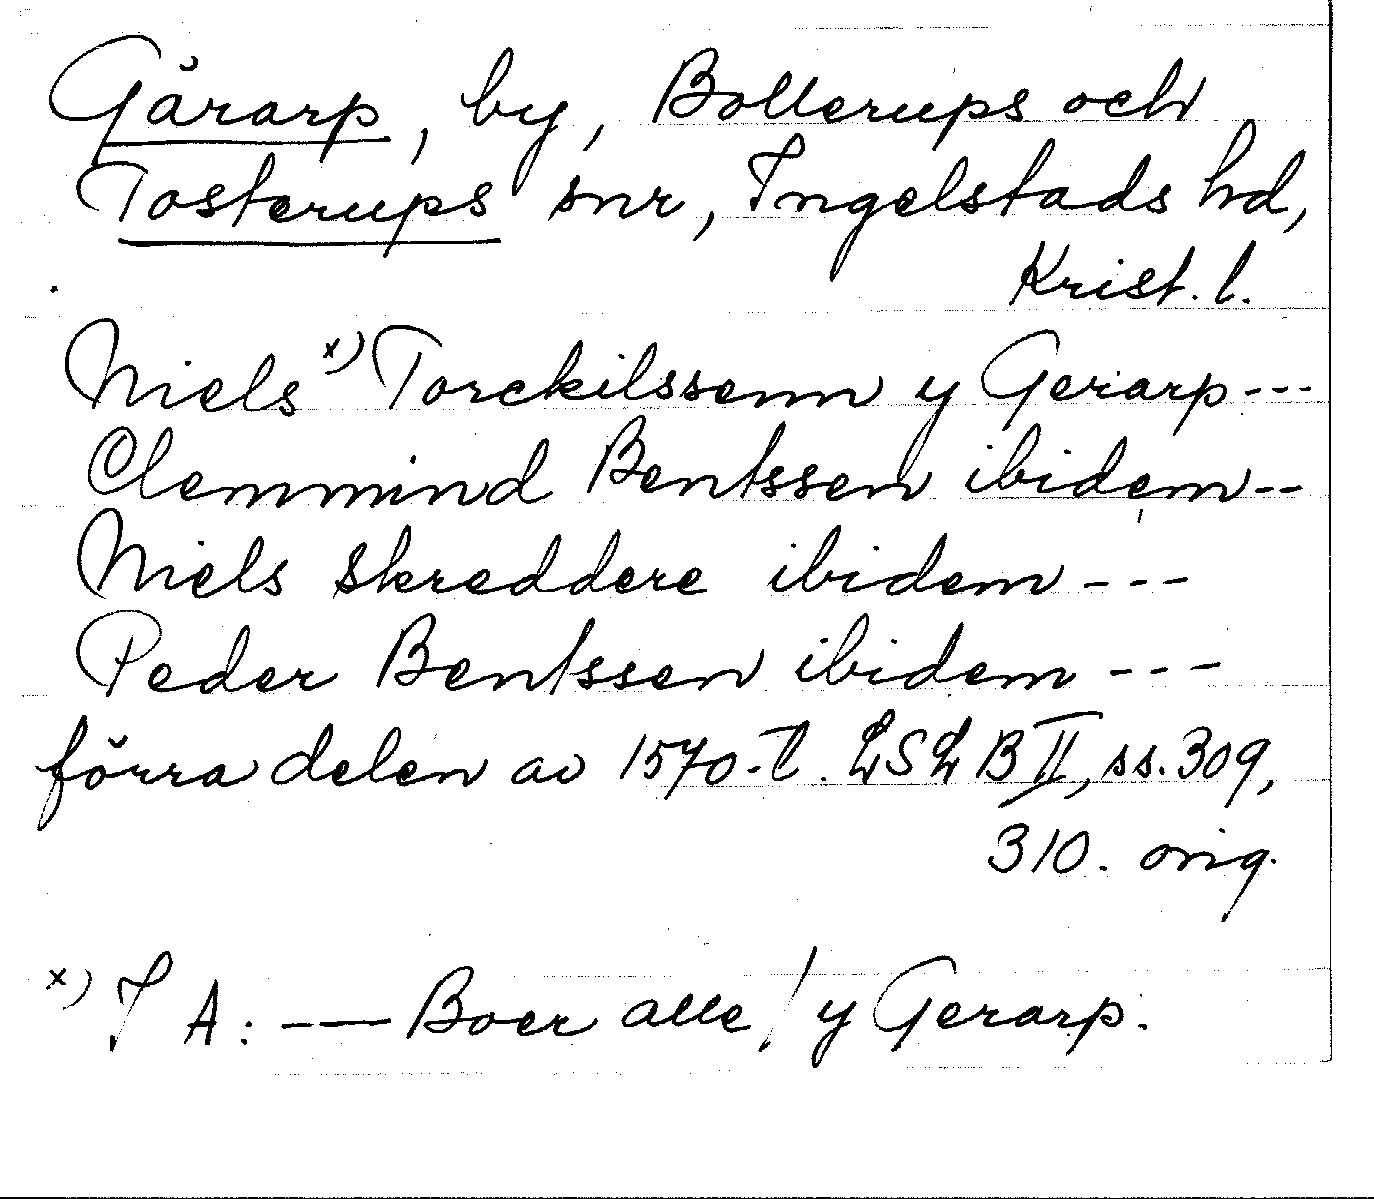 Gärarp, by, Bollerups och
Tosterups snr, Ingelstads hd,
Krist. l.
Niels x) Torckilssenn y Gerarp---
Clemmind Bentssenn ibidem--
Niels Skreddere ibidem---
Peder Bentssen ibidem---
förra delen av 1570-t. LSL B II, ss. 309,
310. orig.
x) I A: --- Boer alle / y Gerarp.